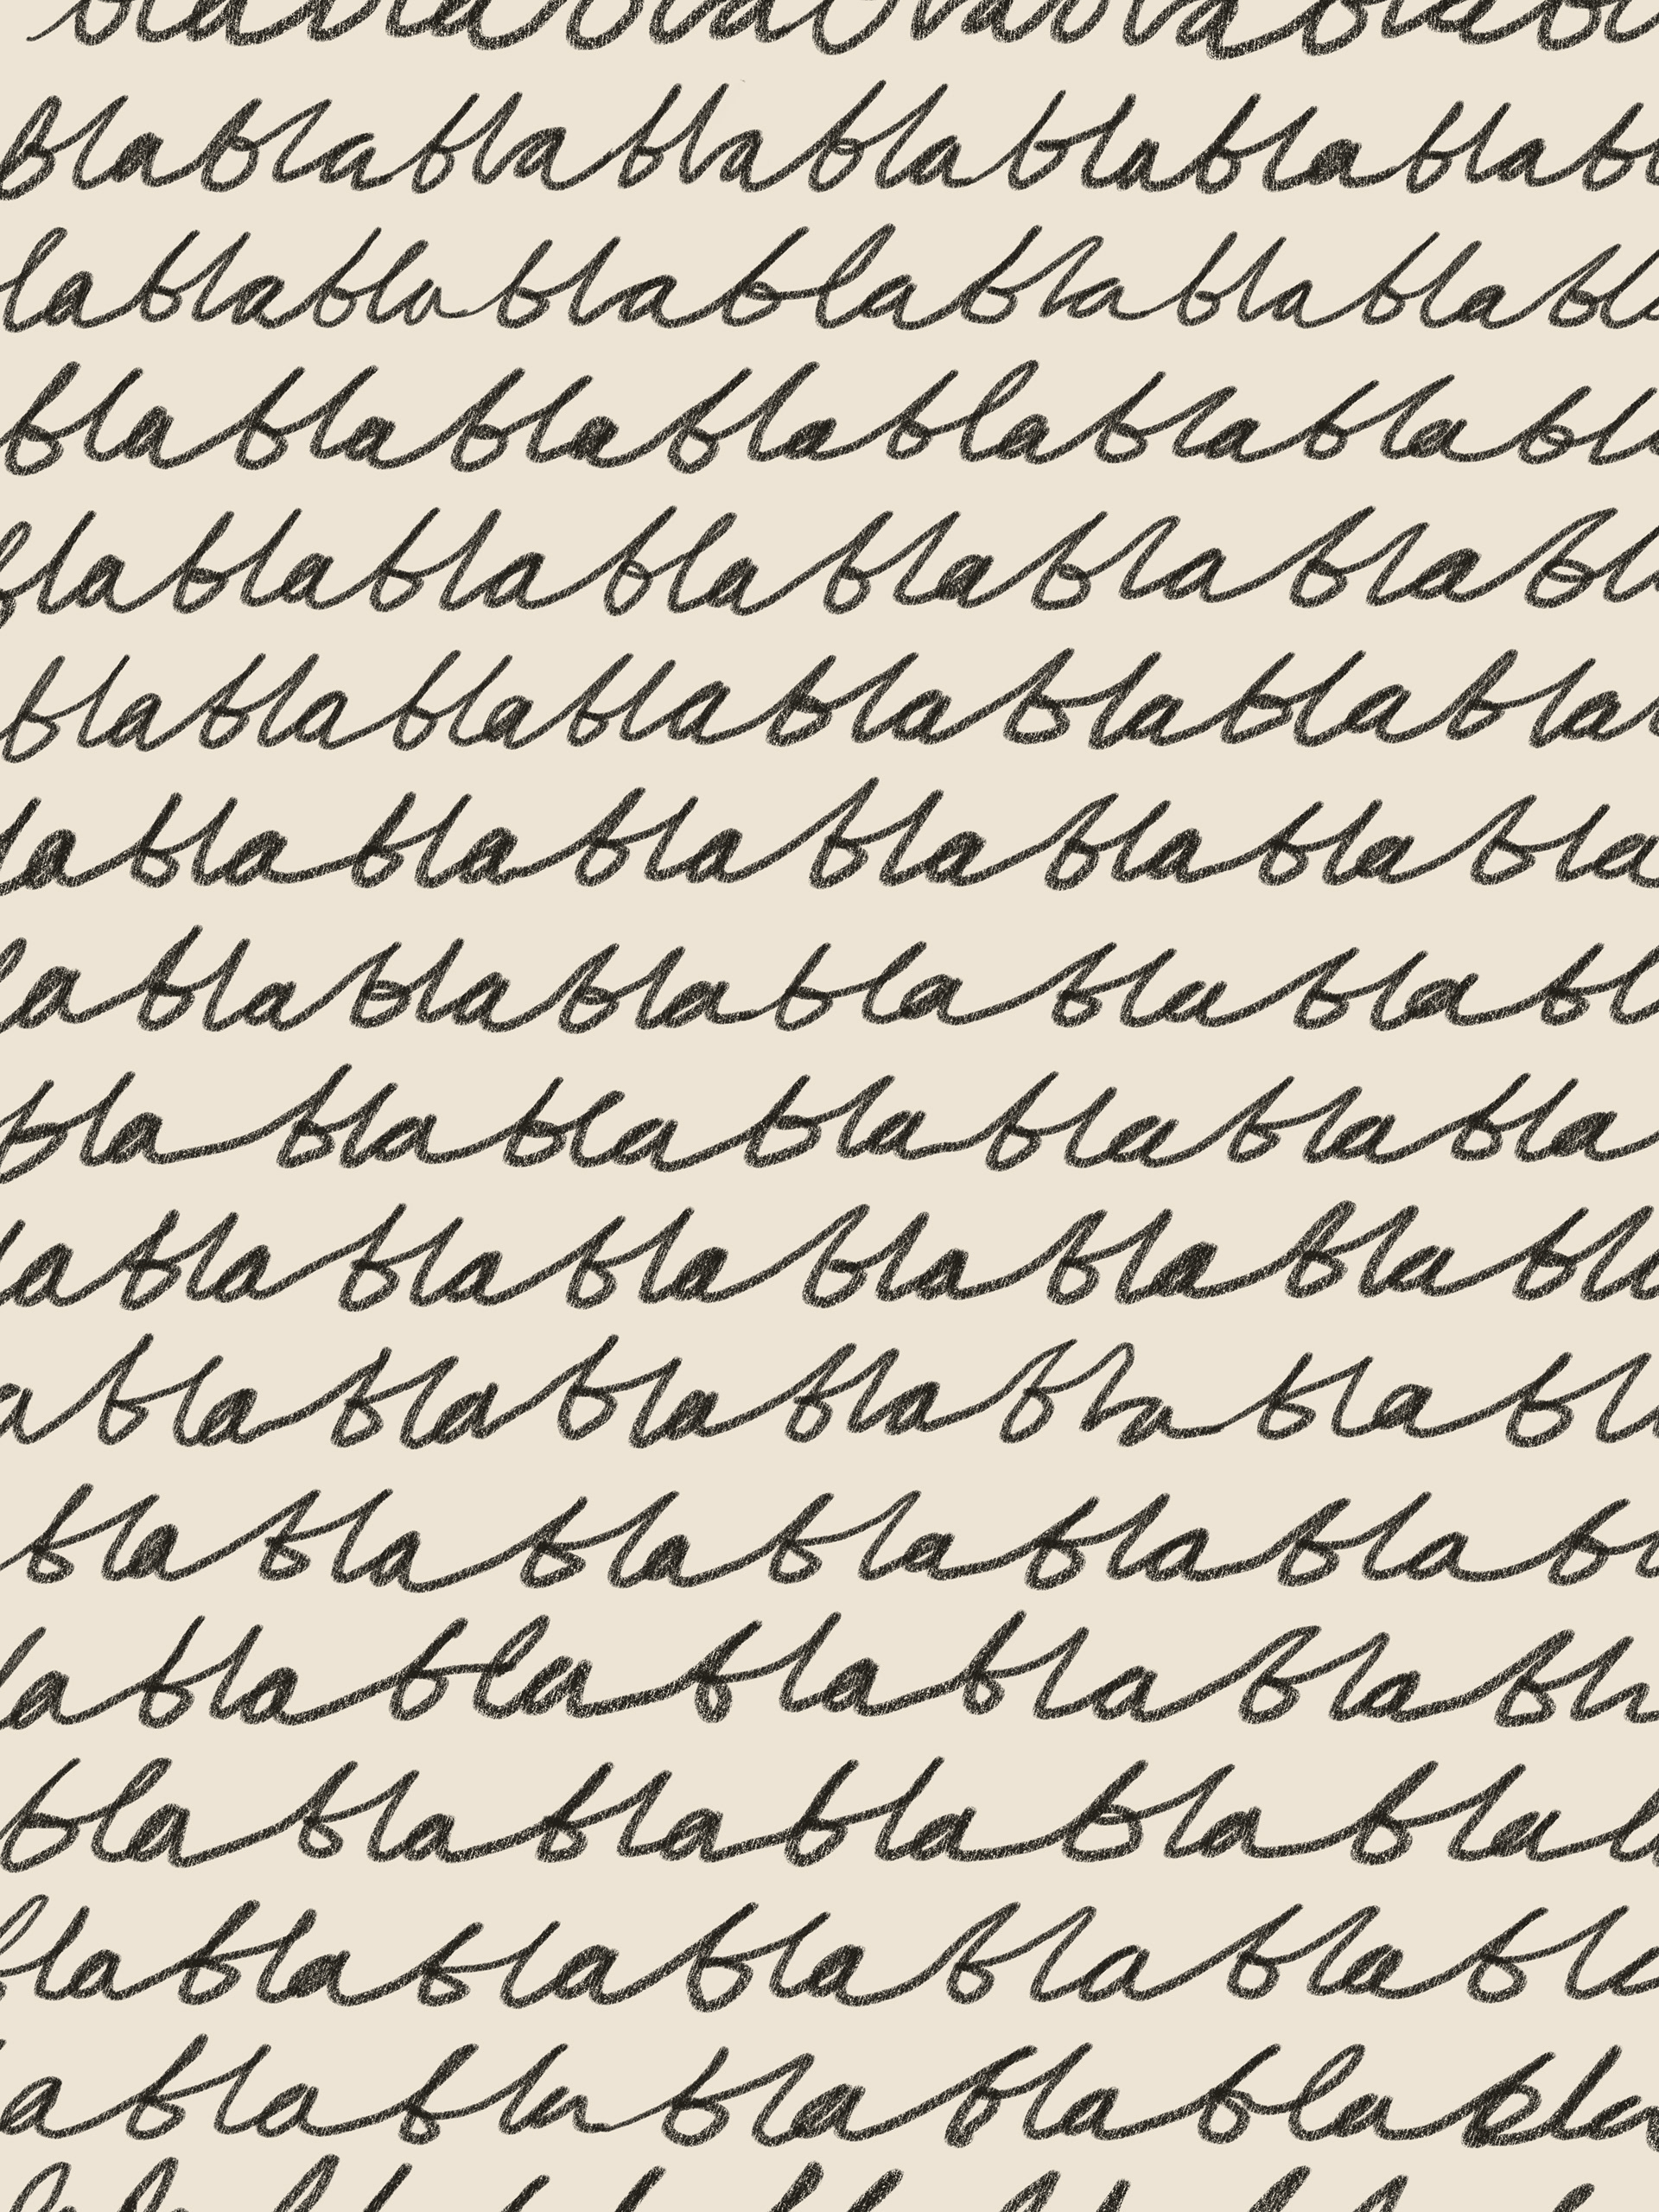 blablablablablablabl
blablablablablablablabl
lablablablablablablabl
blablablablablablabl
blablablablablablabl
blablablablablablablabla
lablablablablablabla
lablablablablablabl
blablablablablabla
lablablablablablabl
ablablablablablabl
blablablablablabl
lablablablablabl
blablablablablabl
blablablablablabl
ablablablablablabla